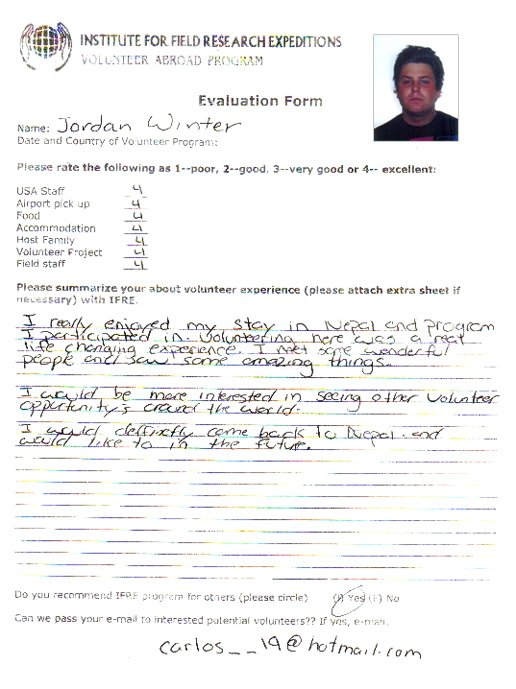 INSTITUTE FOR FIELD RESEARCH EXPEDITIONS
VOLUNTEER ABROAD PROGRAM
Evaluation Form
Name: Jordan Winter
Date and Country of Volunteer Program:
Please rate the following as 1--poor, 2--good, 3--very good or 4-- excellent:
USA Staff 4
Airport pick up 4
Food 4
Accommodation 4
Host Family 4
Volunteer Project 4
Field staff 4
Please summarize your about volunteer experience (please attach extra sheet if
necessary) with IFRE.
I really enjoyed my stay in Nepal and program
I participated in. Volunteering here was a great
life changing experience. I met some wonderful
people and saw some amazing things.
I would be more interested in seeing other volunteer
opportunity's around the world.
I would deffinetly come back to Nepal and
would like to in the future.
Do you recommend IFRE program for others (please circle) Yes No
Can we pass your e-mail to interested potential volunteers?? If yes, e-mail.
carlos__19@hotmail.com